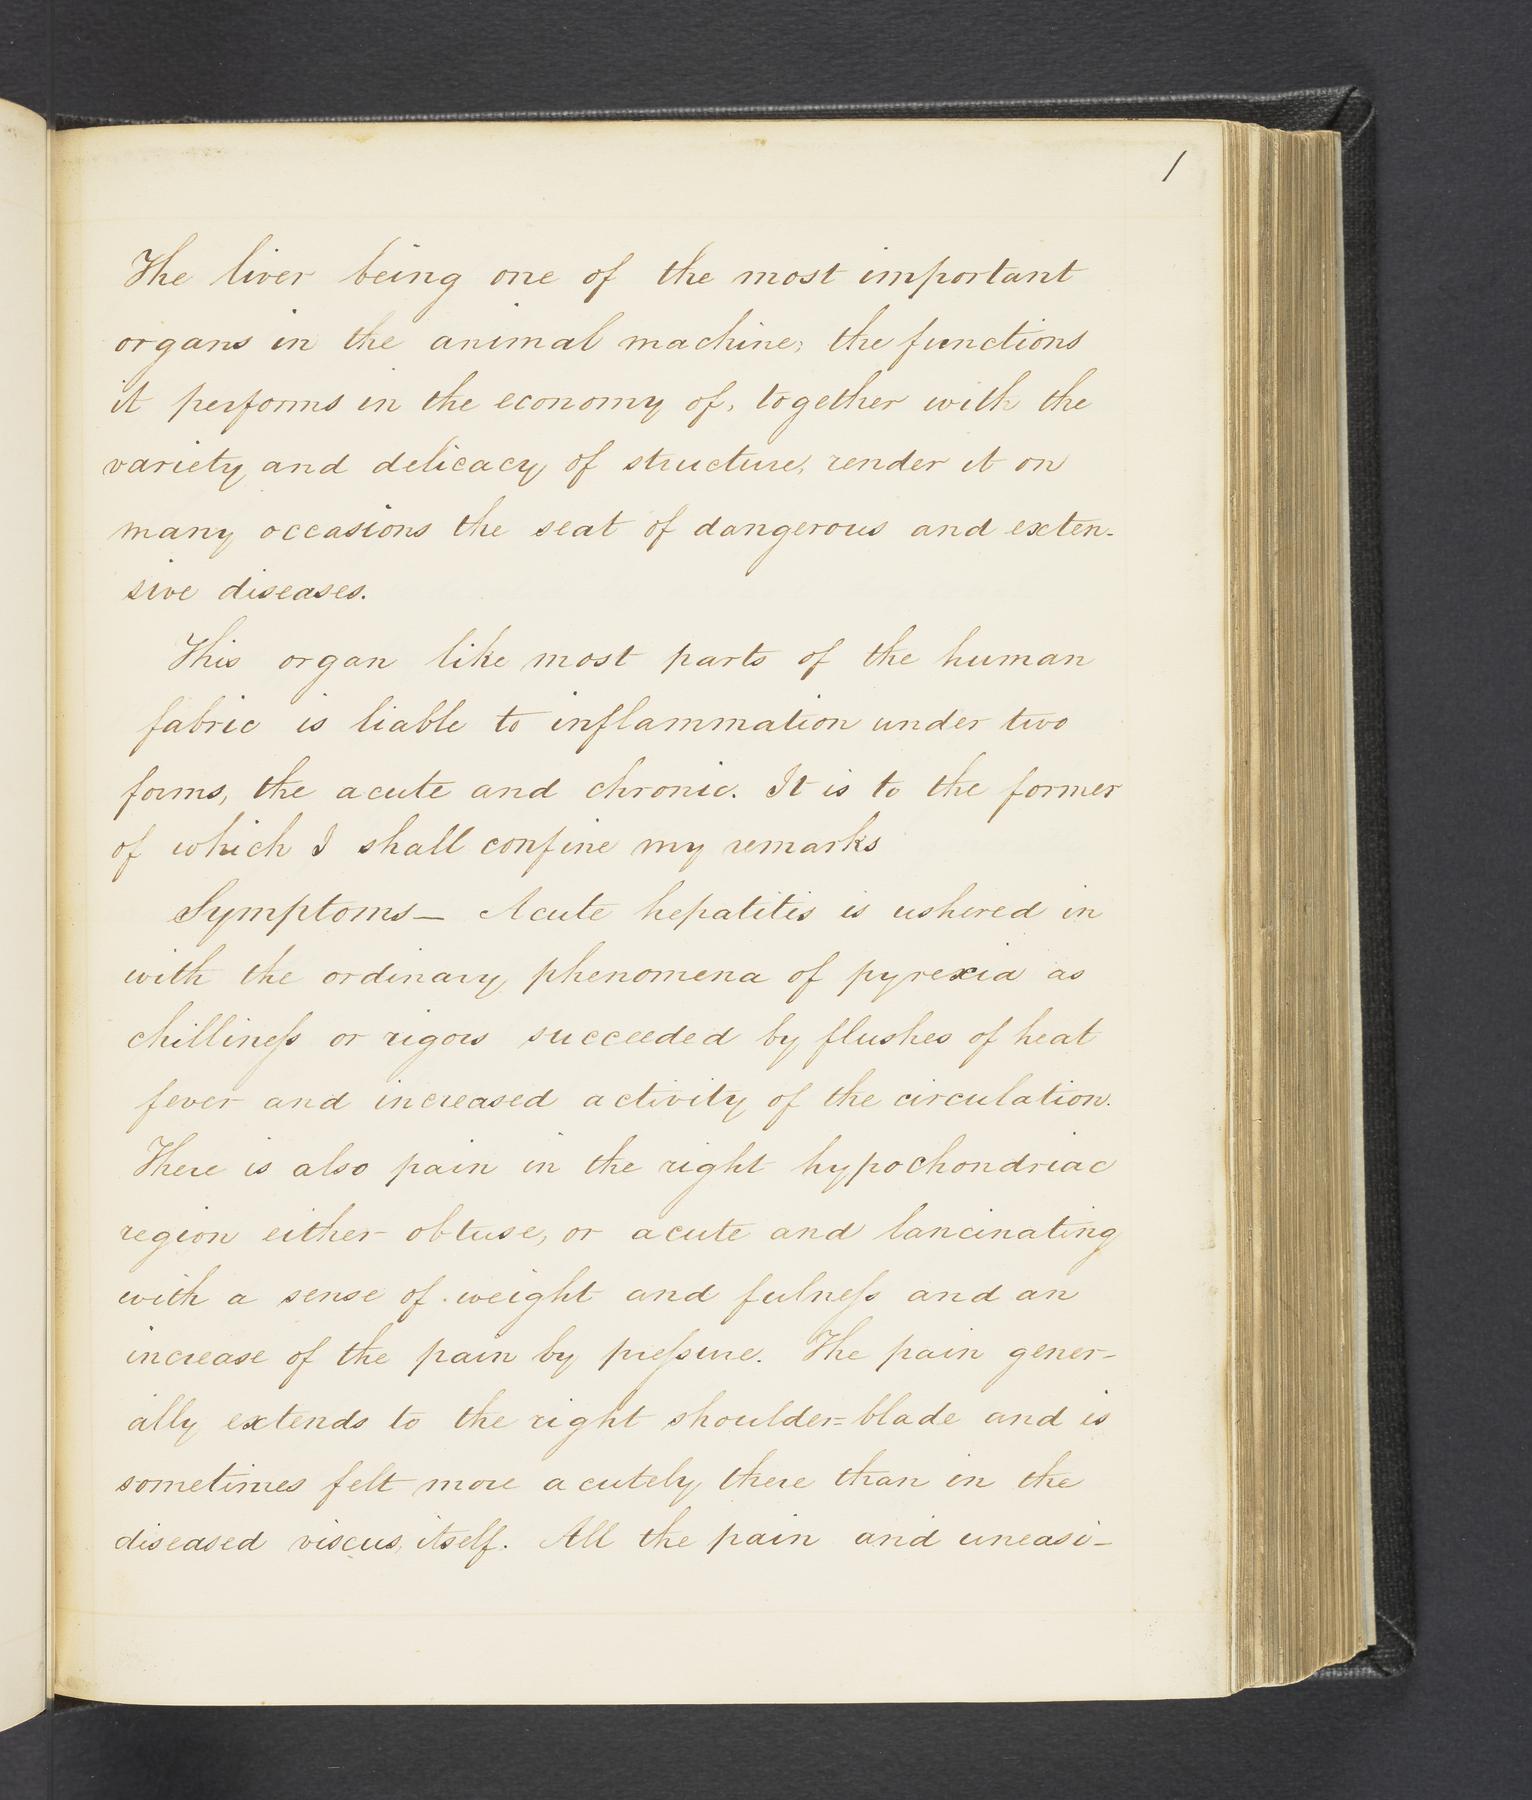 1
The liver being one of the most important
organs in the animal machine; the functions
it performs in the economy of, together with the
variety and delicacy of structure, render it on
many occasions the seat of dangerous and exten-
sive diseases.
This organ like most parts of the human
fabric is liable to inflammation under two
forms, the acute and chronic. It is to the former
of which I shall confine my remarks
Symptoms— Acute hepatitis is ushered in
with the ordinary phenomena of pyrexia as
chillineſs or rigors succeeded by flushes of heat
fever and increased activity of the circulation.
There is also pain in the right hypochondriac
region either obtuse, or acute and lancinating
with a sense of weight and fulneſs and an
increase of the pain by preſsure. The pain gener-
ally extends to the right shoulder=blade and is
sometimes felt more acutely there than in the
diseased viscus itself. All the pain and uneasi-